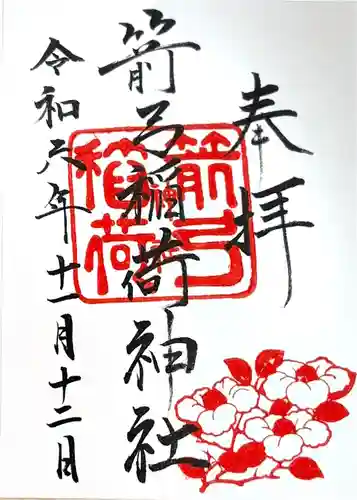 奉拝
箭弓稲荷神社
令和六年十一月十二日
箭弓
稲荷